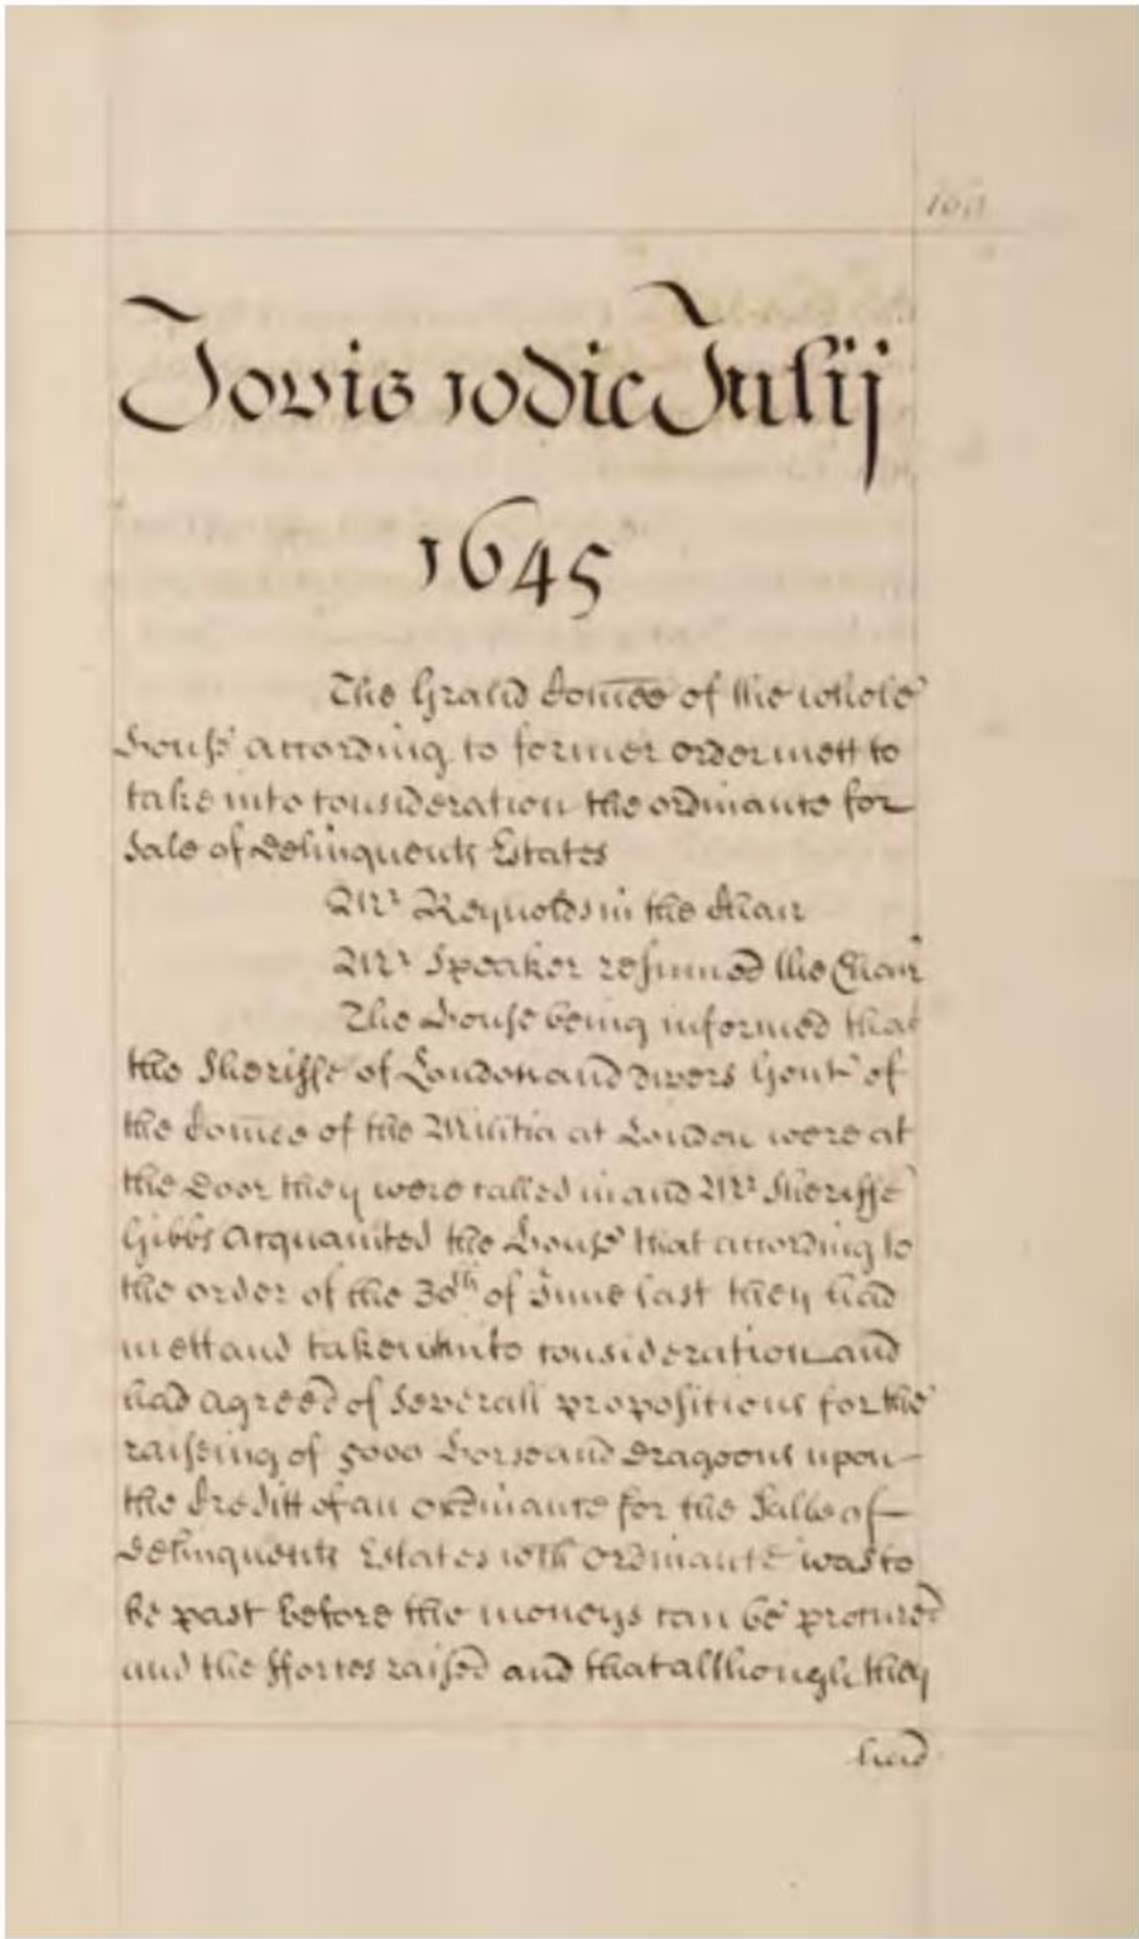 Jovis 10 die Julij
1645
The Grand Com̅ee of the whole
House according to former order mett to
take into consideration the ordinance for
Sale of Delinquents Estates
Mr Reynolds in the Chair
Mr Speaker resumed the Chair
The House being informed that
the Sheriffe of London and divers Gent of
the Com̅ee of the Militia at London were at
the Door they were called in and Mr Sheriffe
Gibbs Acquainted the House that according to
the order of the 30th of June last they had
mett and taken into consideration and
had agreed of Severall propositions for the
raiseing of 5000 Horse and Dragoons upon
the Creditt of an Ordinance for the Salle of
Delinquents Estates wch Ordinance was to
be past before the moneys can be procured
and the fforces raised and that allthough they
had